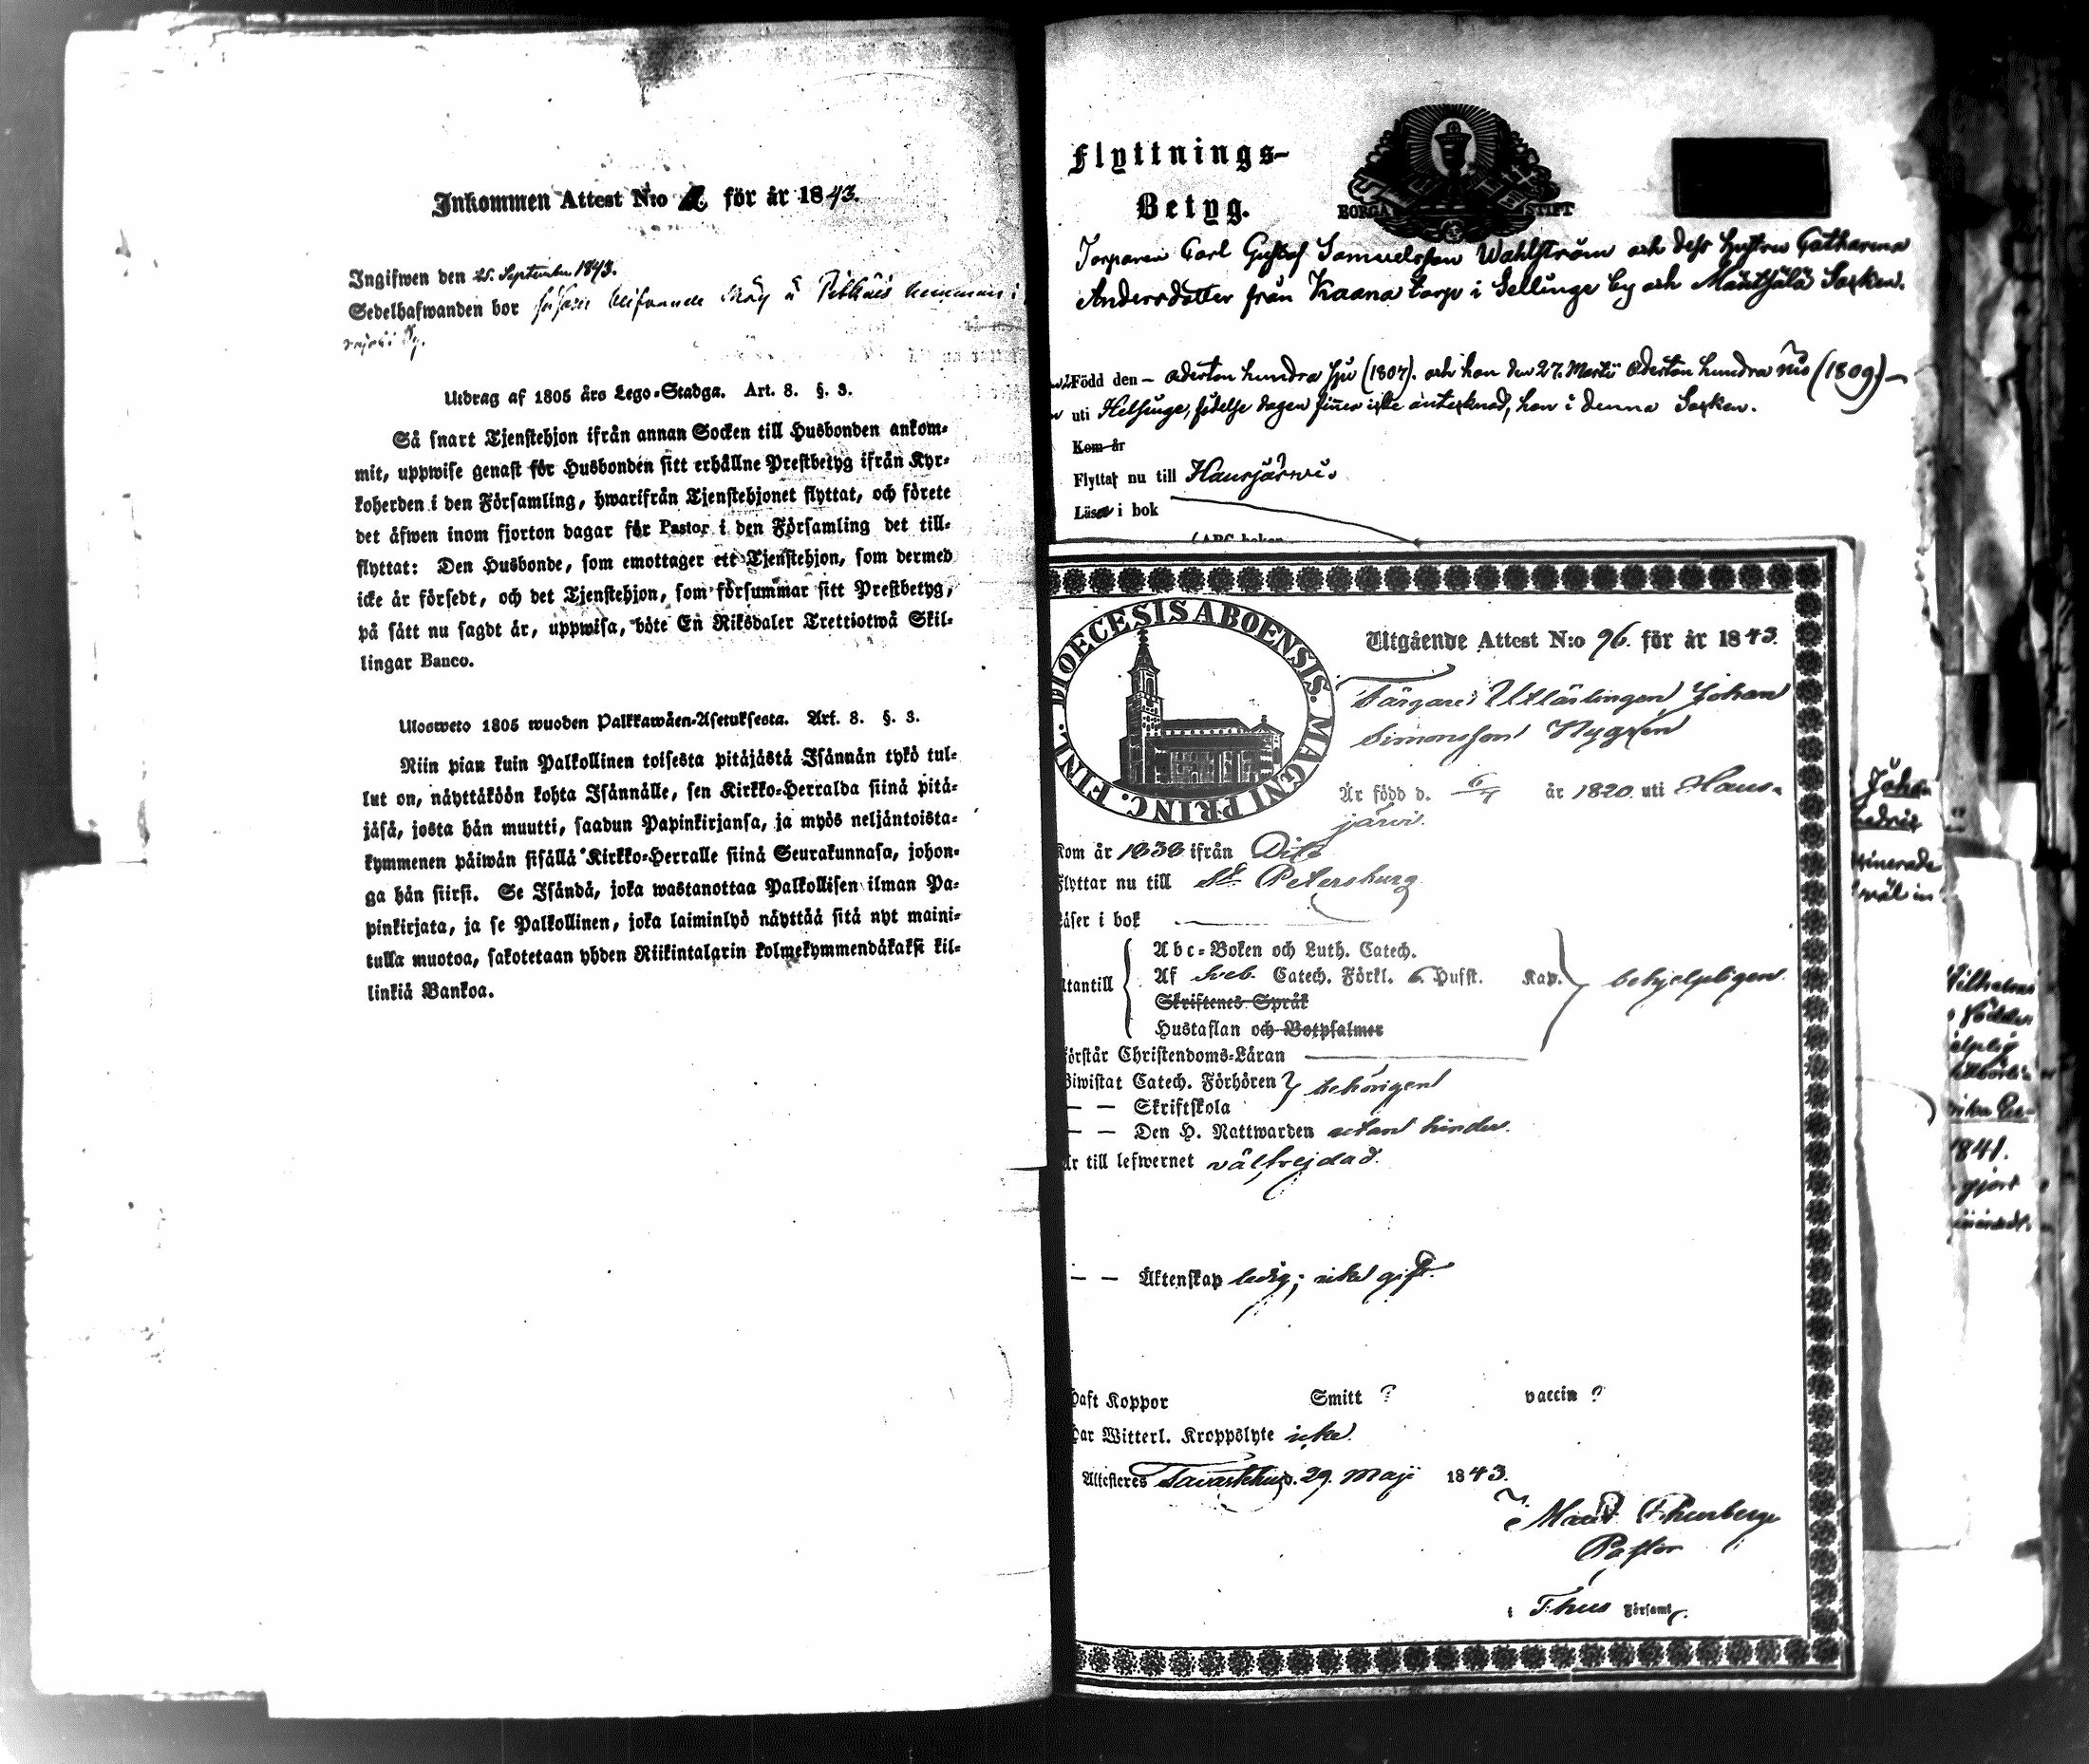 Inkommen Attest N:o för år 1843.
Ingifwen den 25 September 1843.
Sedelhafwanden bor
Utdrag af 1805 års Lego-Stadga. Art. 8. §. 3.
Så snart Tjenstehjon ifrån annan Socken till Husbonden ankom-
mit, uppwise genast för Husbonden sitt erhållne Prestbetyg ifrån Kyr-
koherden i den Församling, hwarifrån Tjenstehjonet flyttat, och förete
det äfwen inom fjorton dagar för Pastor i den Församling det till-
flyttat: Den Husbonde, som emottager ett Tjenstehjon, som dermed
icke är försedt, och det Tjenstehjon, som försummar sitt Prestbetyg,
på sätt nu sagdt är, uppwisa, böte En Riksdaler Trettiotwå Skil-
lingar Banco.
Ulosweto 1805 wuoden Palkkawäen-Asetuksesta. Art. 8. §. 3.
Niin pian kuin Palkollinen toisesta pitäjästä Isännän tykö tul-
lut on, näyttäköön kohta Isännälle, sen Kirkko-Herralda siinä pitä-
jäsä, josta hän muutti, saadun Papinkirjansa, ja myös neljäntoista-
kymmenen päiwän sisällä Kirkko-Herralle siinä Seurakunnasa, johon-
ga hän siirsi. Se Isändä, joka wastanottaa Palkollisen ilman Pa-
pinkirjata, ja se Palkollinen, joka laiminlyö näyttää sitä nyt maini-
tulla muotoa, sakotetaan yhden Riikintalarin kolmekymmendäkaksi kil-
linkiä Bankoa.
Flyttnings-
Betyg.
BORGÅ STIFT
Torparen Carl Gustaf Samuelsson Wahlström och dess hustru Catharina
Andersdotter från Kaana torp i Sellinge by och Mäntsälä Socken.
Född den - aderton hundra sju (1807). och hon den 27. Martii Aderton hundra nio (1809) -
uti Helsinge, födelse dagen finnes icke antecknad, hon i denna Socken.
Kom år
Flyttar nu till Hausjärwi
Läser i bok
FINL. DIOECESIS ABOENSIS. MAGNI PRINC.
Utgående Attest N:o 96. för år 1843.
Färgare Utlärlingen Johan
Simonsson Nygrén
Är född d. 6/4 år 1820. uti Haus-
järvi.
Kom år 1838 ifrån Dito
Flyttar nu till St. Petersburg
Läser i bok
Utantill
Abc-Boken och Luth. Catech.
Af Sveb. Catech. Förkl. 6 Hufst. Kap.
Skriftenes Språk
Hustaflan och Botpsalmer
behjelpligen
Förstår Christendoms-Läran
Biwistat Catech. Förhören
— — Skriftskola
behörigen
— — Den H. Nattwarden utan hinder.
Är till lefwernet välfrejdad.
— — Äktenskap ledig; icke gift.
Haft Koppor Smitt ? vaccin ?
Har Witterl. Kroppslyte icke
Attesteres Tavastehus d. 29. Maji 1843.
Thunberg
Pastor
i T:hus Församl.
1841.
gjort